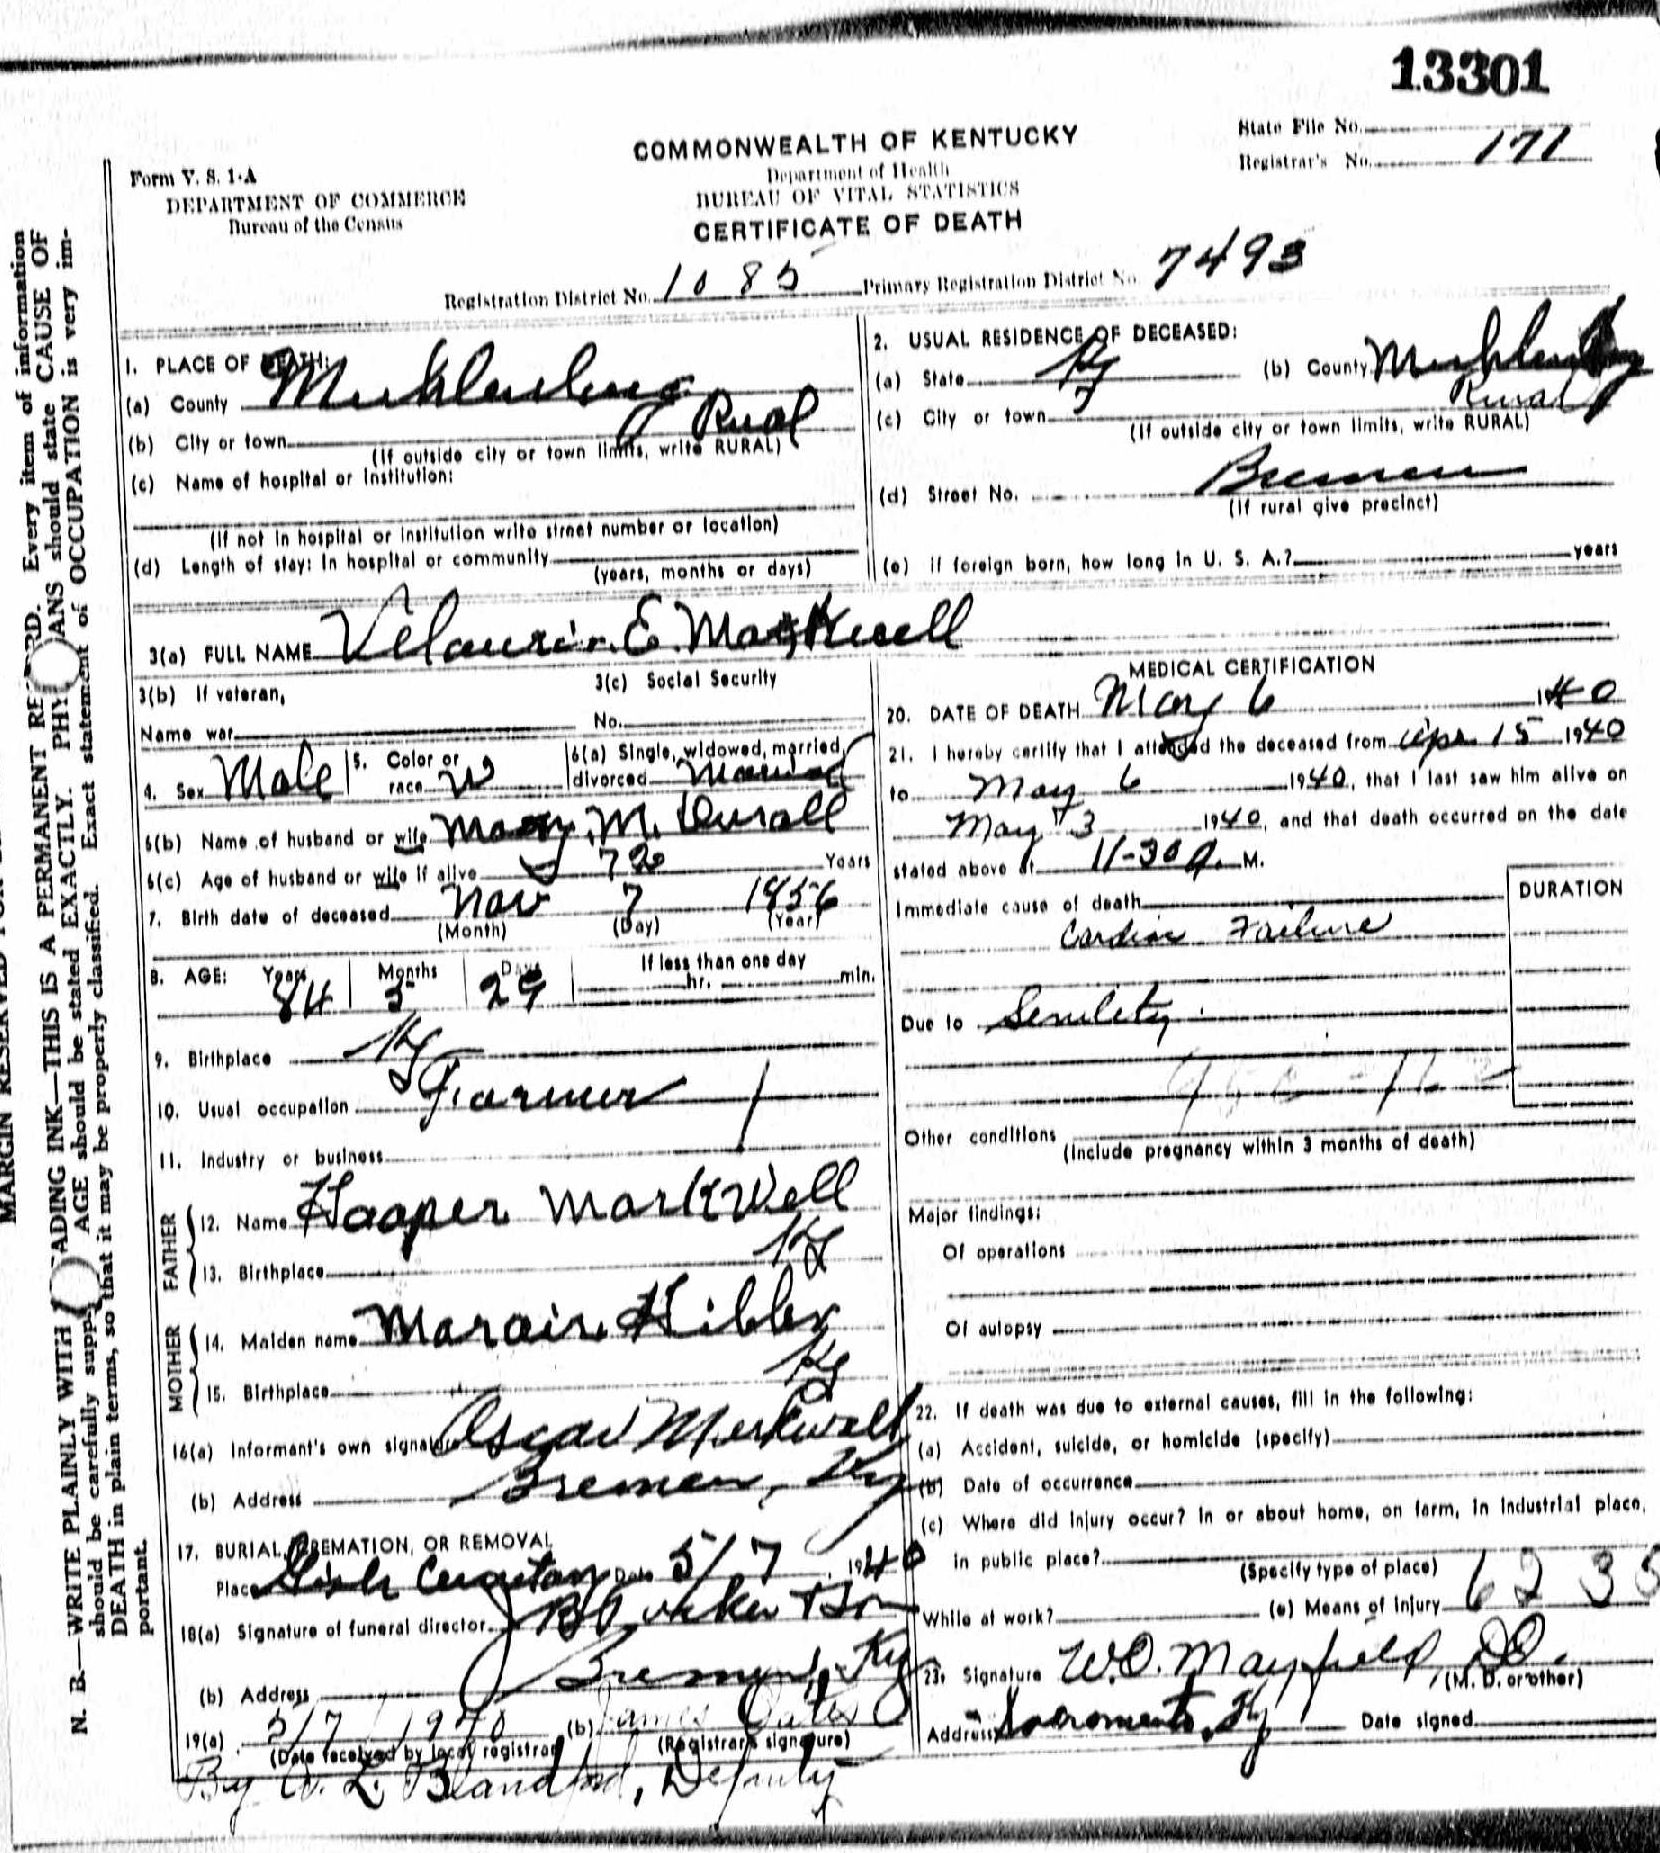 13301
State File No.
Registrar's No. 171
COMMONWEALTH OF KENTUCKY
Department of Health
BUREAU OF VITAL STATISTICS
CERTIFICATE OF DEATH
Form V. S. 1-A
DEPARTMENT OF COMMERCE
Bureau of the Census
Registration District No. 1085 Primary Registration District No. 7493
MARGIN RESERVED
N. B.—WRITE PLAINLY WITH ADING INK—THIS IS A PERMANENT RE RD. Every item of information
should be carefully supp AGE should be stated EXACTLY. PHY ANS should state CAUSE OF
DEATH in plain terms, so that it may be properly classified. Exact statement of OCCUPATION is very im-
portant.
1. PLACE OF DEATH:
(a) County Muhlenberg
(b) City or town Rural
(If outside city or town limits, write RURAL)
(c) Name of hospital or institution:
(If not in hospital or institution write street number or location)
(d) Length of stay: In hospital or community
(years, months or days)
2. USUAL RESIDENCE OF DECEASED:
(a) State Ky (b) County Muhlenberg
(c) City or town Rural
(If outside city or town limits, write RURAL)
(d) Street No. Bremen
(If rural give precinct)
(e) If foreign born, how long in U. S. A.? years
3(a) FULL NAME E. Markwell
3(b) If veteran,
Name war
3(c) Social Security
No.
4. Sex Male
5. Color or
race W
6(a) Single, widowed, married,
divorced Married
6(b) Name of husband or wife Mary M. Duvall
6(c) Age of husband or wife if alive 72 Years
7. Birth date of deceased Nov 7 1856
(Month) (Day) (Year)
8. AGE: Years Months Days If less than one day
84 5 29 hr. min.
9. Birthplace Ky
10. Usual occupation Farmer
11. Industry or business
FATHER
12. Name Hooper Markwell
13. Birthplace Ky
MOTHER
14. Maiden name Hibbs
15. Birthplace Ky
16(a) Informant's own signature Oscar Markwell
(b) Address Bremen, Ky
17. BURIAL, CREMATION, OR REMOVAL
Place Date 5/7, 1940
18(a) Signature of funeral director
(b) Address Bremen, Ky
19(a) 5/7/1940 (b) James Oates
(Date received by local registrar) (Registrar's signature)
By Blandford, Deputy
MEDICAL CERTIFICATION
20. DATE OF DEATH May 6 1940
21. I hereby certify that I attended the deceased from Apr 15 1940
to May 6 1940, that I last saw him alive on
May 3 1940, and that death occurred on the date
stated above at 11-30 M.
Immediate cause of death
DURATION
Cardiac Failure
Due to Senility
Other conditions
(Include pregnancy within 3 months of death)
Major findings:
Of operations
Of autopsy
22. If death was due to external causes, fill in the following:
(a) Accident, suicide, or homicide (specify)
(b) Date of occurrence
(c) Where did injury occur? In or about home, on farm, in industrial place,
in public place?
(Specify type of place)
While at work? (e) Means of injury
6235
23. Signature W.O. Mayfield, DO.
(M. D. or other)
Address Sacramento, Ky Date signed